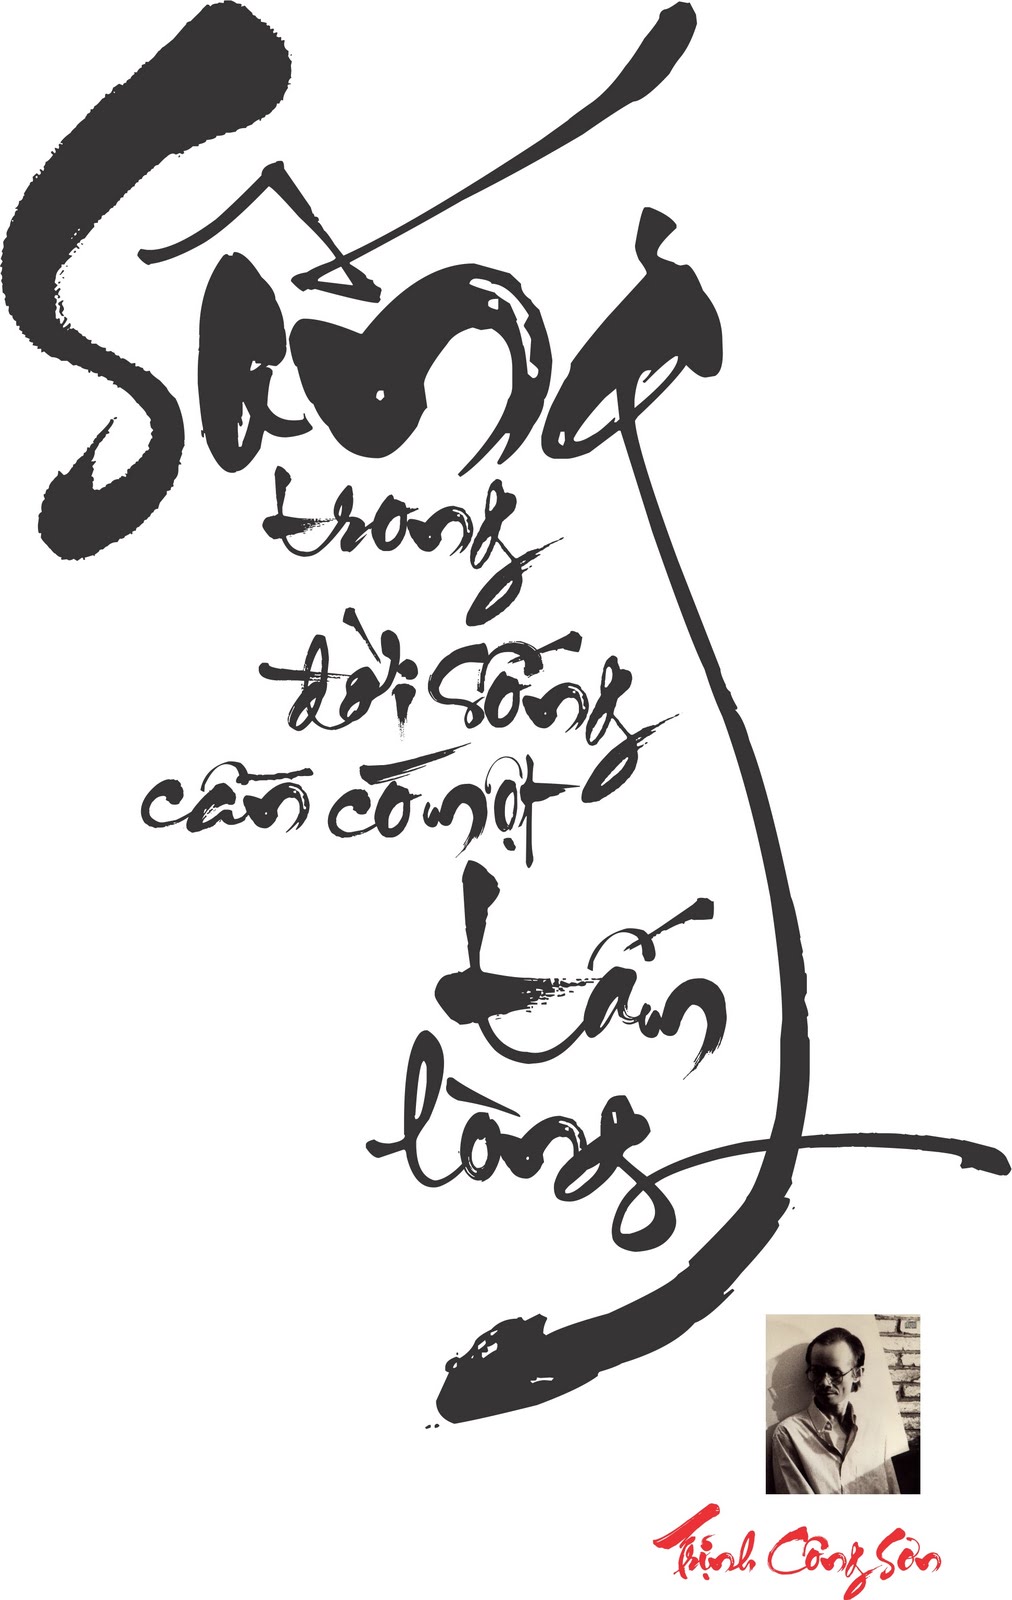 Sống
trong
đời sống
cần có một
tấm
lòng
Trịnh Công Sơn